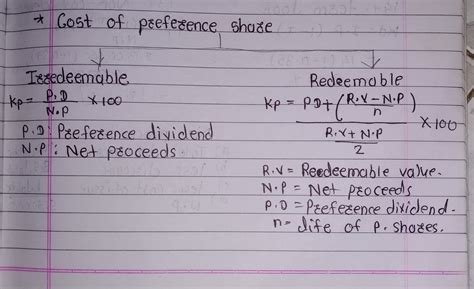 * Cost of preference share
Irredeemable
Kp = P.D / N.P × 100
P.D : Preference dividend
N.P : Net proceeds.
Redeemable
Kp = PD + (R.V - N.P / n) / R.V + N.P / 2 × 100
R.V = Reedeemable value.
N.P = Net proceeds
P.D = Preference dividend.
n = life of P. shares.